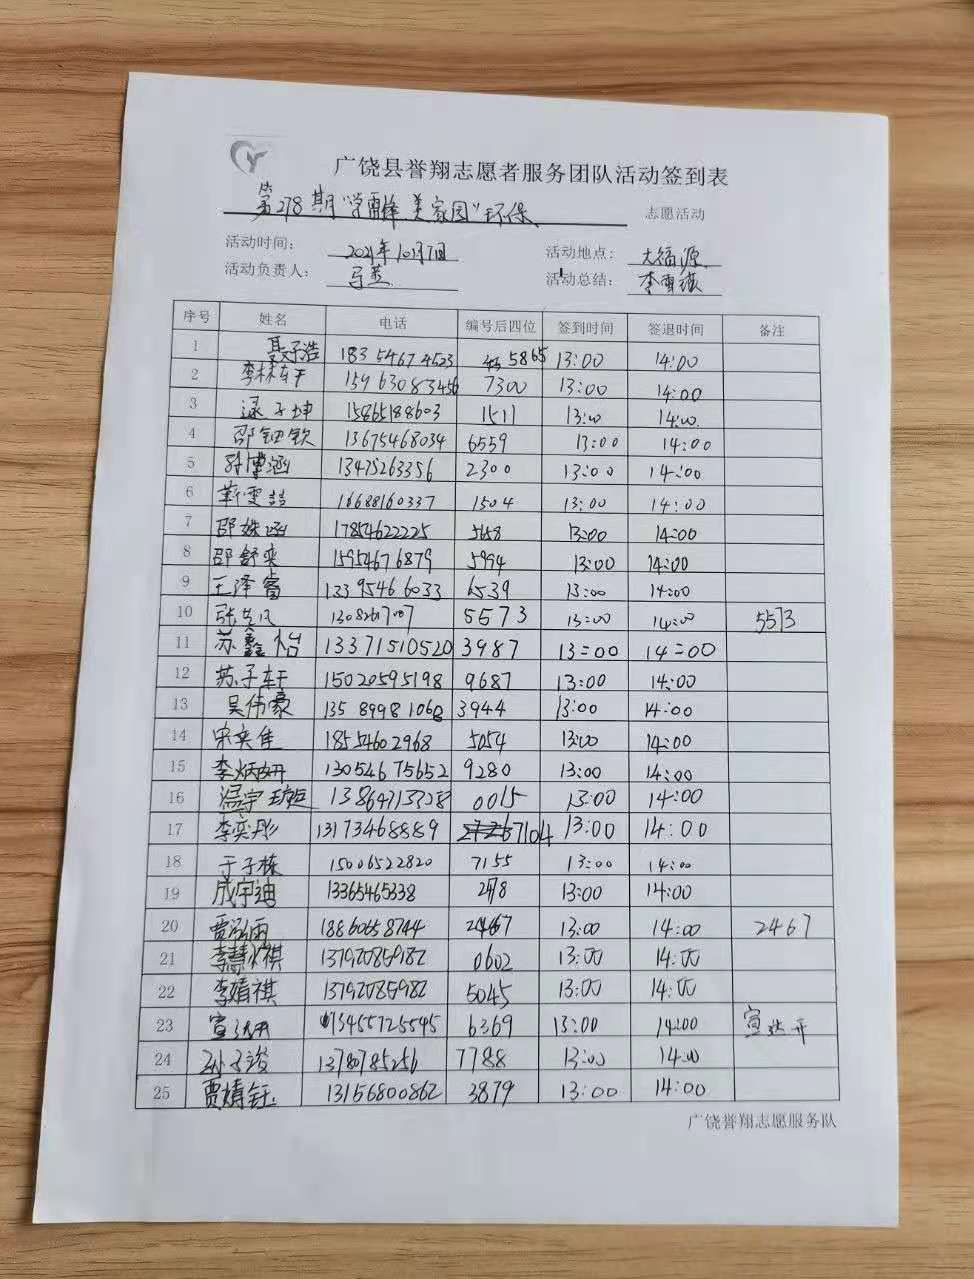 广饶县誉翔志愿者服务团队活动签到表
第278期"学雷锋 美家园"环保 志愿活动
活动时间: 2021年10月7日 活动地点: 大福源
活动负责人: 活动总结: 李雪
序号 姓名 电话 编号后四位 签到时间 签退时间 备注
1 聂子浩 18354674523 5865 13:00 14:00
2 李林轩 15963083456 7300 13:00 14:00
3 子坤 15865188603 1511 13:00 14:00
4 邵钿钦 13675468034 6559 13:00 14:00
5 孙博涵 13475263356 2300 13:00 14:00
6 靳雯喆 16688160337 1504 13:00 14:00
7 邵姝函 17854622225 5658 13:00 14:00
8 邵舒奕 15954676879 5994 13:00 14:00
9 王泽睿 13395466033 6539 13:00 14:00
10 张 5573 13:00 14:00 5573
11 苏鑫怡 13371510520 3987 13:00 14:00
12 苏子轩 15020595198 9687 13:00 14:00
13 吴伟豪 13589981068 3944 13:00 14:00
14 宋奕佳 18554602968 5054 13:00 14:00
15 李炳妍 13054675652 9280 13:00 14:00
16 温宇 13864713728 0015 13:00 14:00
17 李奕彤 13173468889 7104 13:00 14:00
18 于子栋 15006522820 7155 13:00 14:00
19 成宇迪 13365465338 13:00 14:00
20 贾泓雨 18860658744 2467 13:00 14:00 2467
21 李慧祺 13792085982 0602 13:00 14:00
22 李婧祺 13792085982 5045 13:00 14:00
23 宣 13455725545 6369 13:00 14:00 宣 开
24 孙子竣 13780785256 7788 13:00 14:00
25 贾婧钰 13156800862 3879 13:00 14:00
广饶誉翔志愿服务队